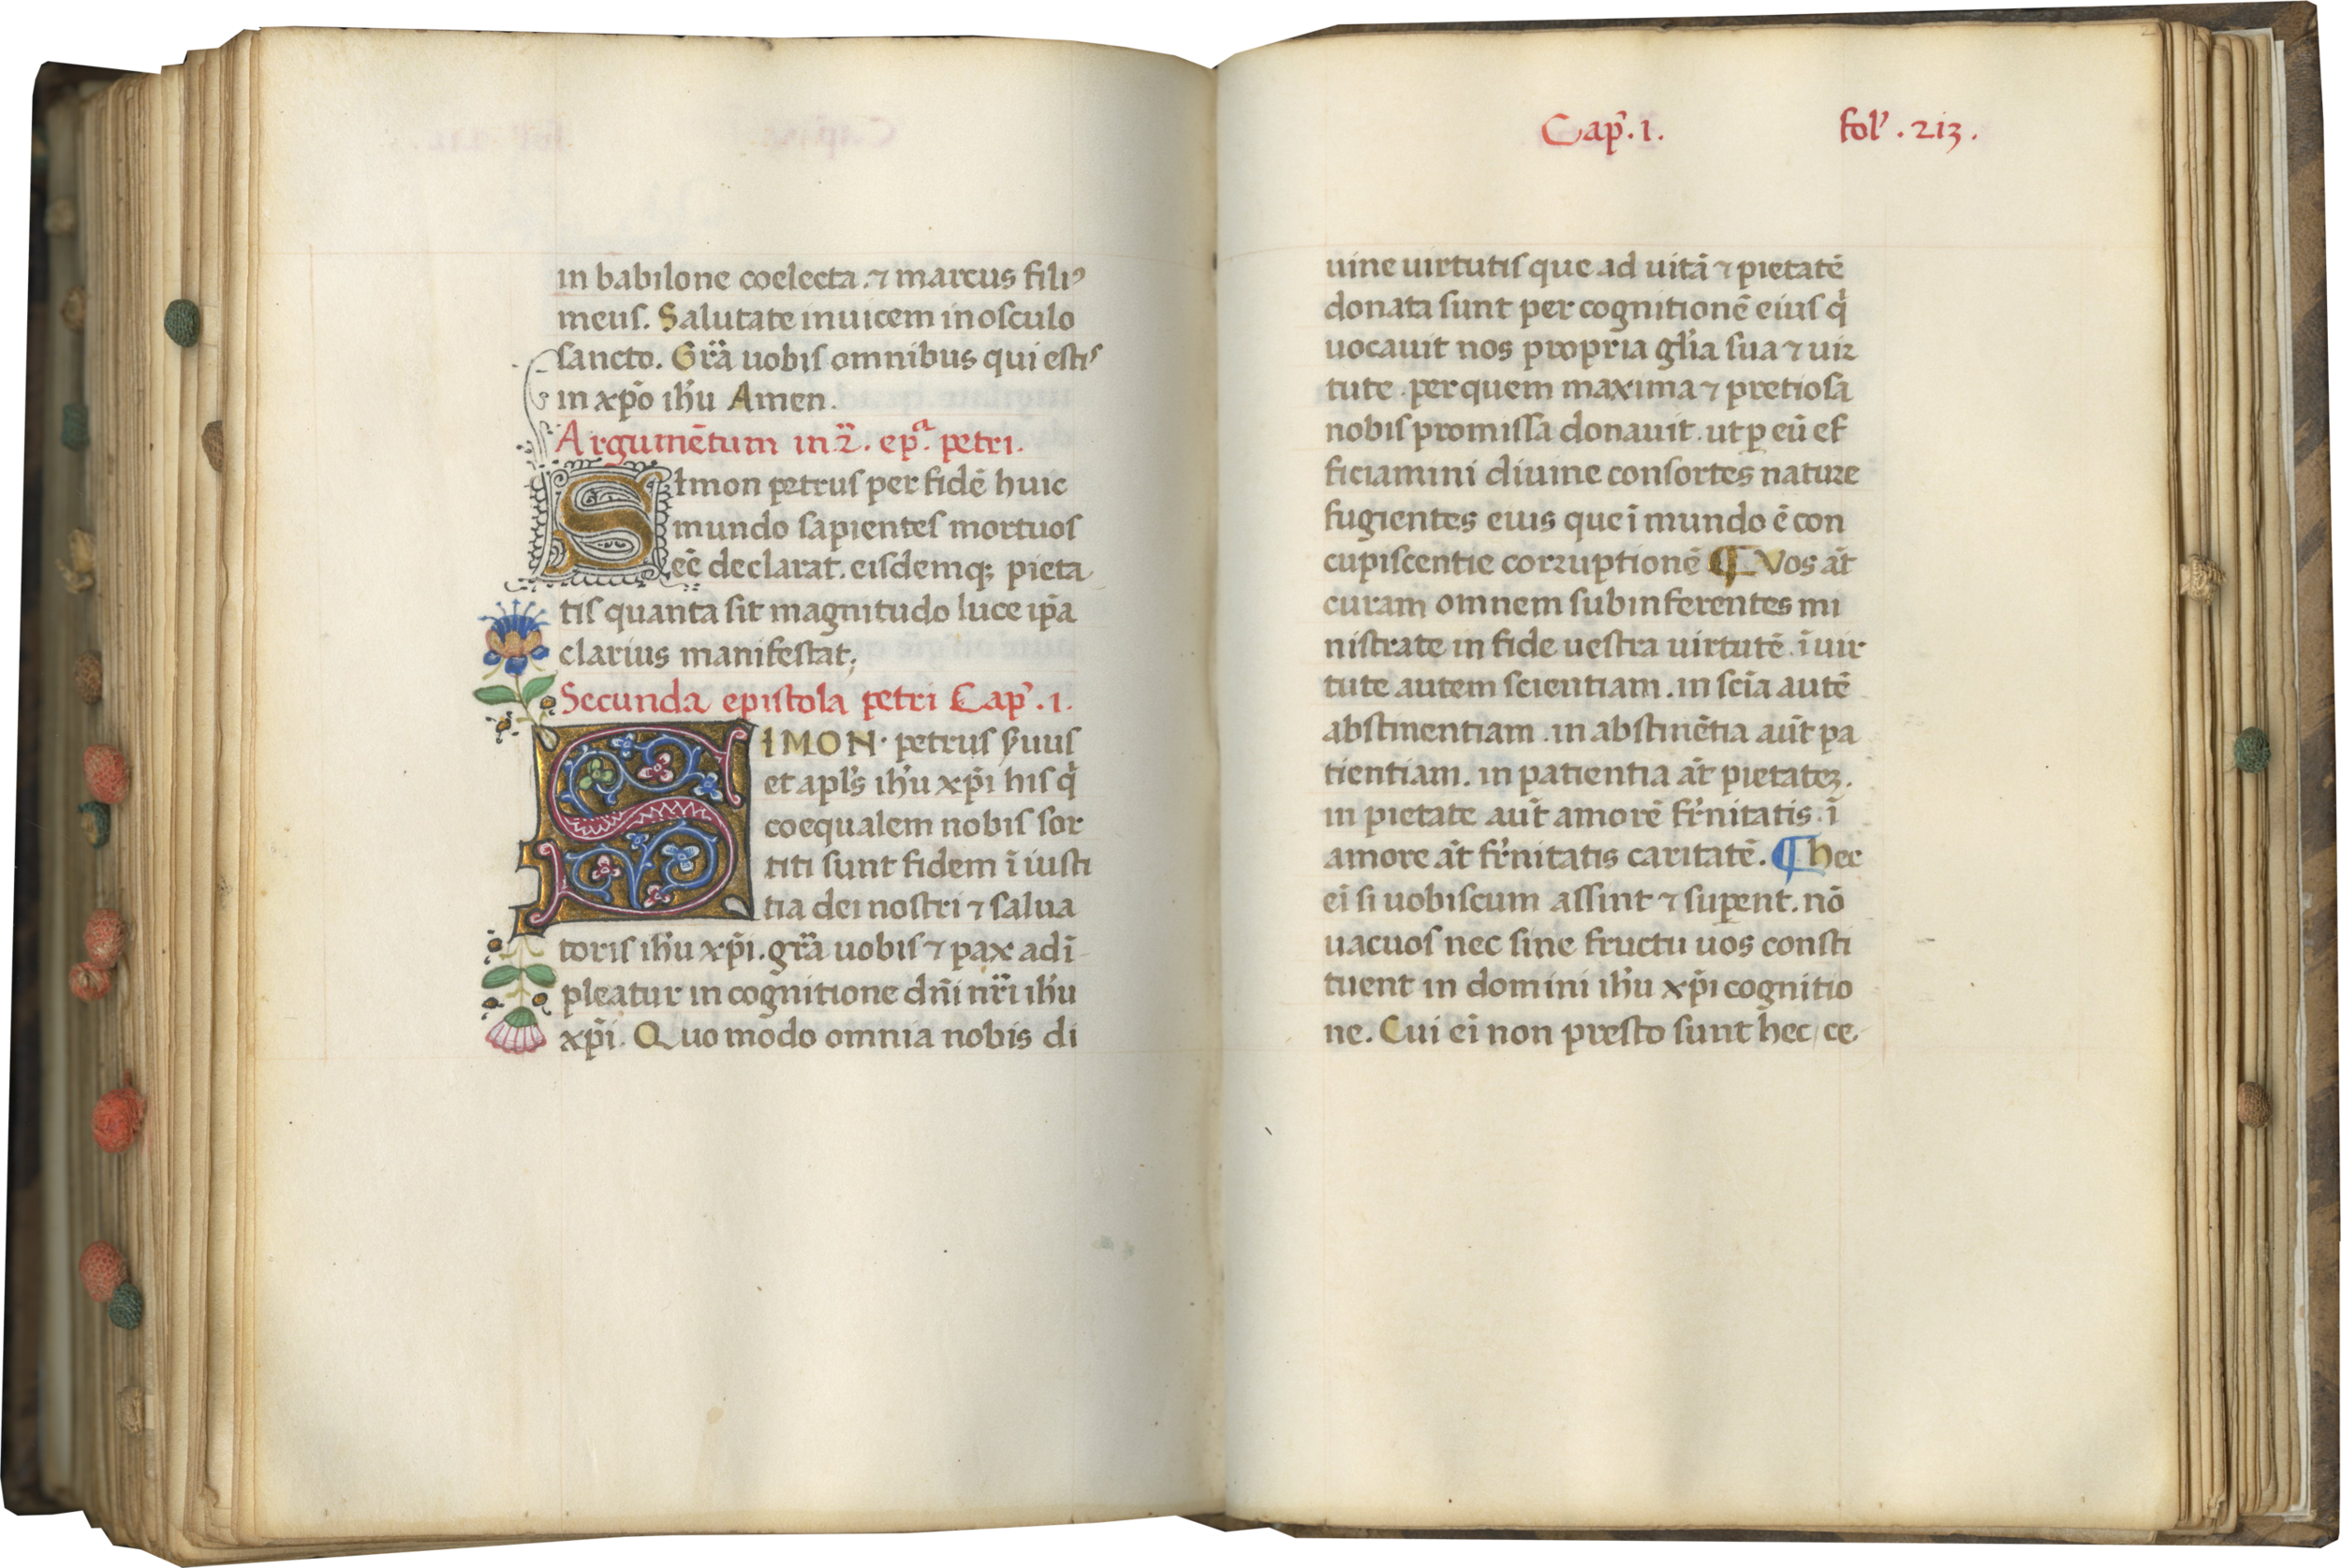 in babilone coelecta. ⁊ marcus filiꝰ
meuſ. Salutate inuicem inoſculo
ſancto. Gr̃a uobiſ omnibus qui eſtiſ
in xp̃o ih̃u Amen.
Argumẽtum in .2̃. ep.ᵃ petri.
Simon petruſ per fidẽ huic
mundo ſapienteſ mortuoſ
eẽ declarat. eiſdemqꝫ pieta
tiſ quanta ſit magnitudo luce ip̃a
clarius manifeſtat;
Secunda epiſtola petri Cap̉. 1.
SIMON. petrus ẜuuſ
et apl̉s ih̉u xp̃i hiſ q̉
coequalem nobiſ ſor
titi ſunt fidem ĩ iuſti
tia dei noſtri ⁊ ſalua
toriſ ih̉u xp̃i. gr̃a uobiſ ⁊ pax adĩ
pleatur in cognitione dñi nr̃i ih̉u
xp̃i. Quo modo omnia nobis di
Cap̉. 1. fol̉. 213.
uine uirtutiſ que ad uitã ⁊ pietatẽ
donata ſunt per cognitionẽ eiuſ q̉
uocauit nos propria gl̉ia ſua ⁊ uir
tute. per quem maxima ⁊ pretioſa
nobiſ promiſſa donauit. ut ꝑ eũ ef
ficiamini diuine conſortes nature
fugientes eius que ĩ mundo ẽ con
cupiſcentie corruptionẽ ¶ Vos ãt
curam omnem ſubinferentes mi
niſtrate in fide ueſtra uirtutẽ. ĩ uir
tute autem ſcientiam. in ſcĩa autẽ
abſtinentiam. in abſtinẽtia aũt pa
tientiam. in patientia ãt pietateꝫ.
in pietate aũt amorẽ fr̉nitatis. ĩ
amore ãt fr̉nitatis caritatẽ. ¶ hec
eĩ ſi uobiſcum aſſint ⁊ suꝑent. nõ
uacuoſ nec ſine fructu uos conſti
tuent in domini ih̉u xp̃i cognitio
ne. Cui eĩ non preſto ſunt hec, ce